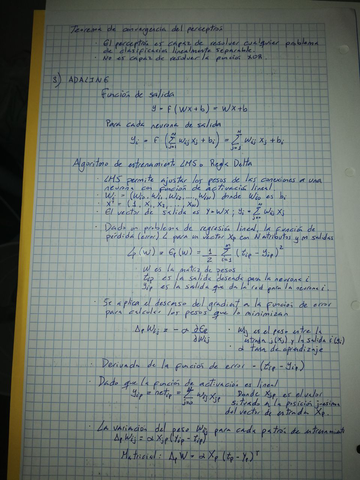 Teorema de convergencia del perceptrón
El perceptrón es capaz de resolver cualquier problema
de clasificación linealmente separable.
· No es capaz de resolver la función XOR.
3) ADALINE
Función de salida
y = f(WX+b) = WX+b
Para cada neurona de salida
y_i = f(Σ w_ij x_j + b_i) = Σ w_ij x_j + b_i
Algoritmo de entrenamiento LMS = Regla Delta
· LMS permite ajustar los pesos de las conexiones a una
neurona con función de activación lineal.
donde W_i0 es b_i
· El vector de salida es Y = WX ; y_i = Σ w_ij x_j
· Dado un problema de regresión lineal, la función de
pérdida (error) L para un vector Xp con N atributos y m salidas
= 1/2 Σ (t_ip - y_ip)²
W es la matriz de pesos
t_ip es la salida deseada para la neurona i
y_ip es la salida que da la red para la neurona i
· Se aplica el descenso del gradiente a la función de error
para calcular los pesos que la minimizan
w_ij es el peso entre la
entrada j (x_j) y la salida i (y_i)
· α tasa de aprendizaje
· Derivada de la función de error = -(t_ip - y_ip)
· Dado que la función de activación es lineal
y_ip = net_ip = Σ w_ij x_jp
Donde x_jp es el valor
situado en la posición j-ésima
del vector de entradas Xp.
· La variación del peso W_ij para cada patrón de entrenamiento
Δp W_ij = α x_jp (t_ip - y_ip)
Matricial: Δp W = α Xp (tp - yp)ᵀ